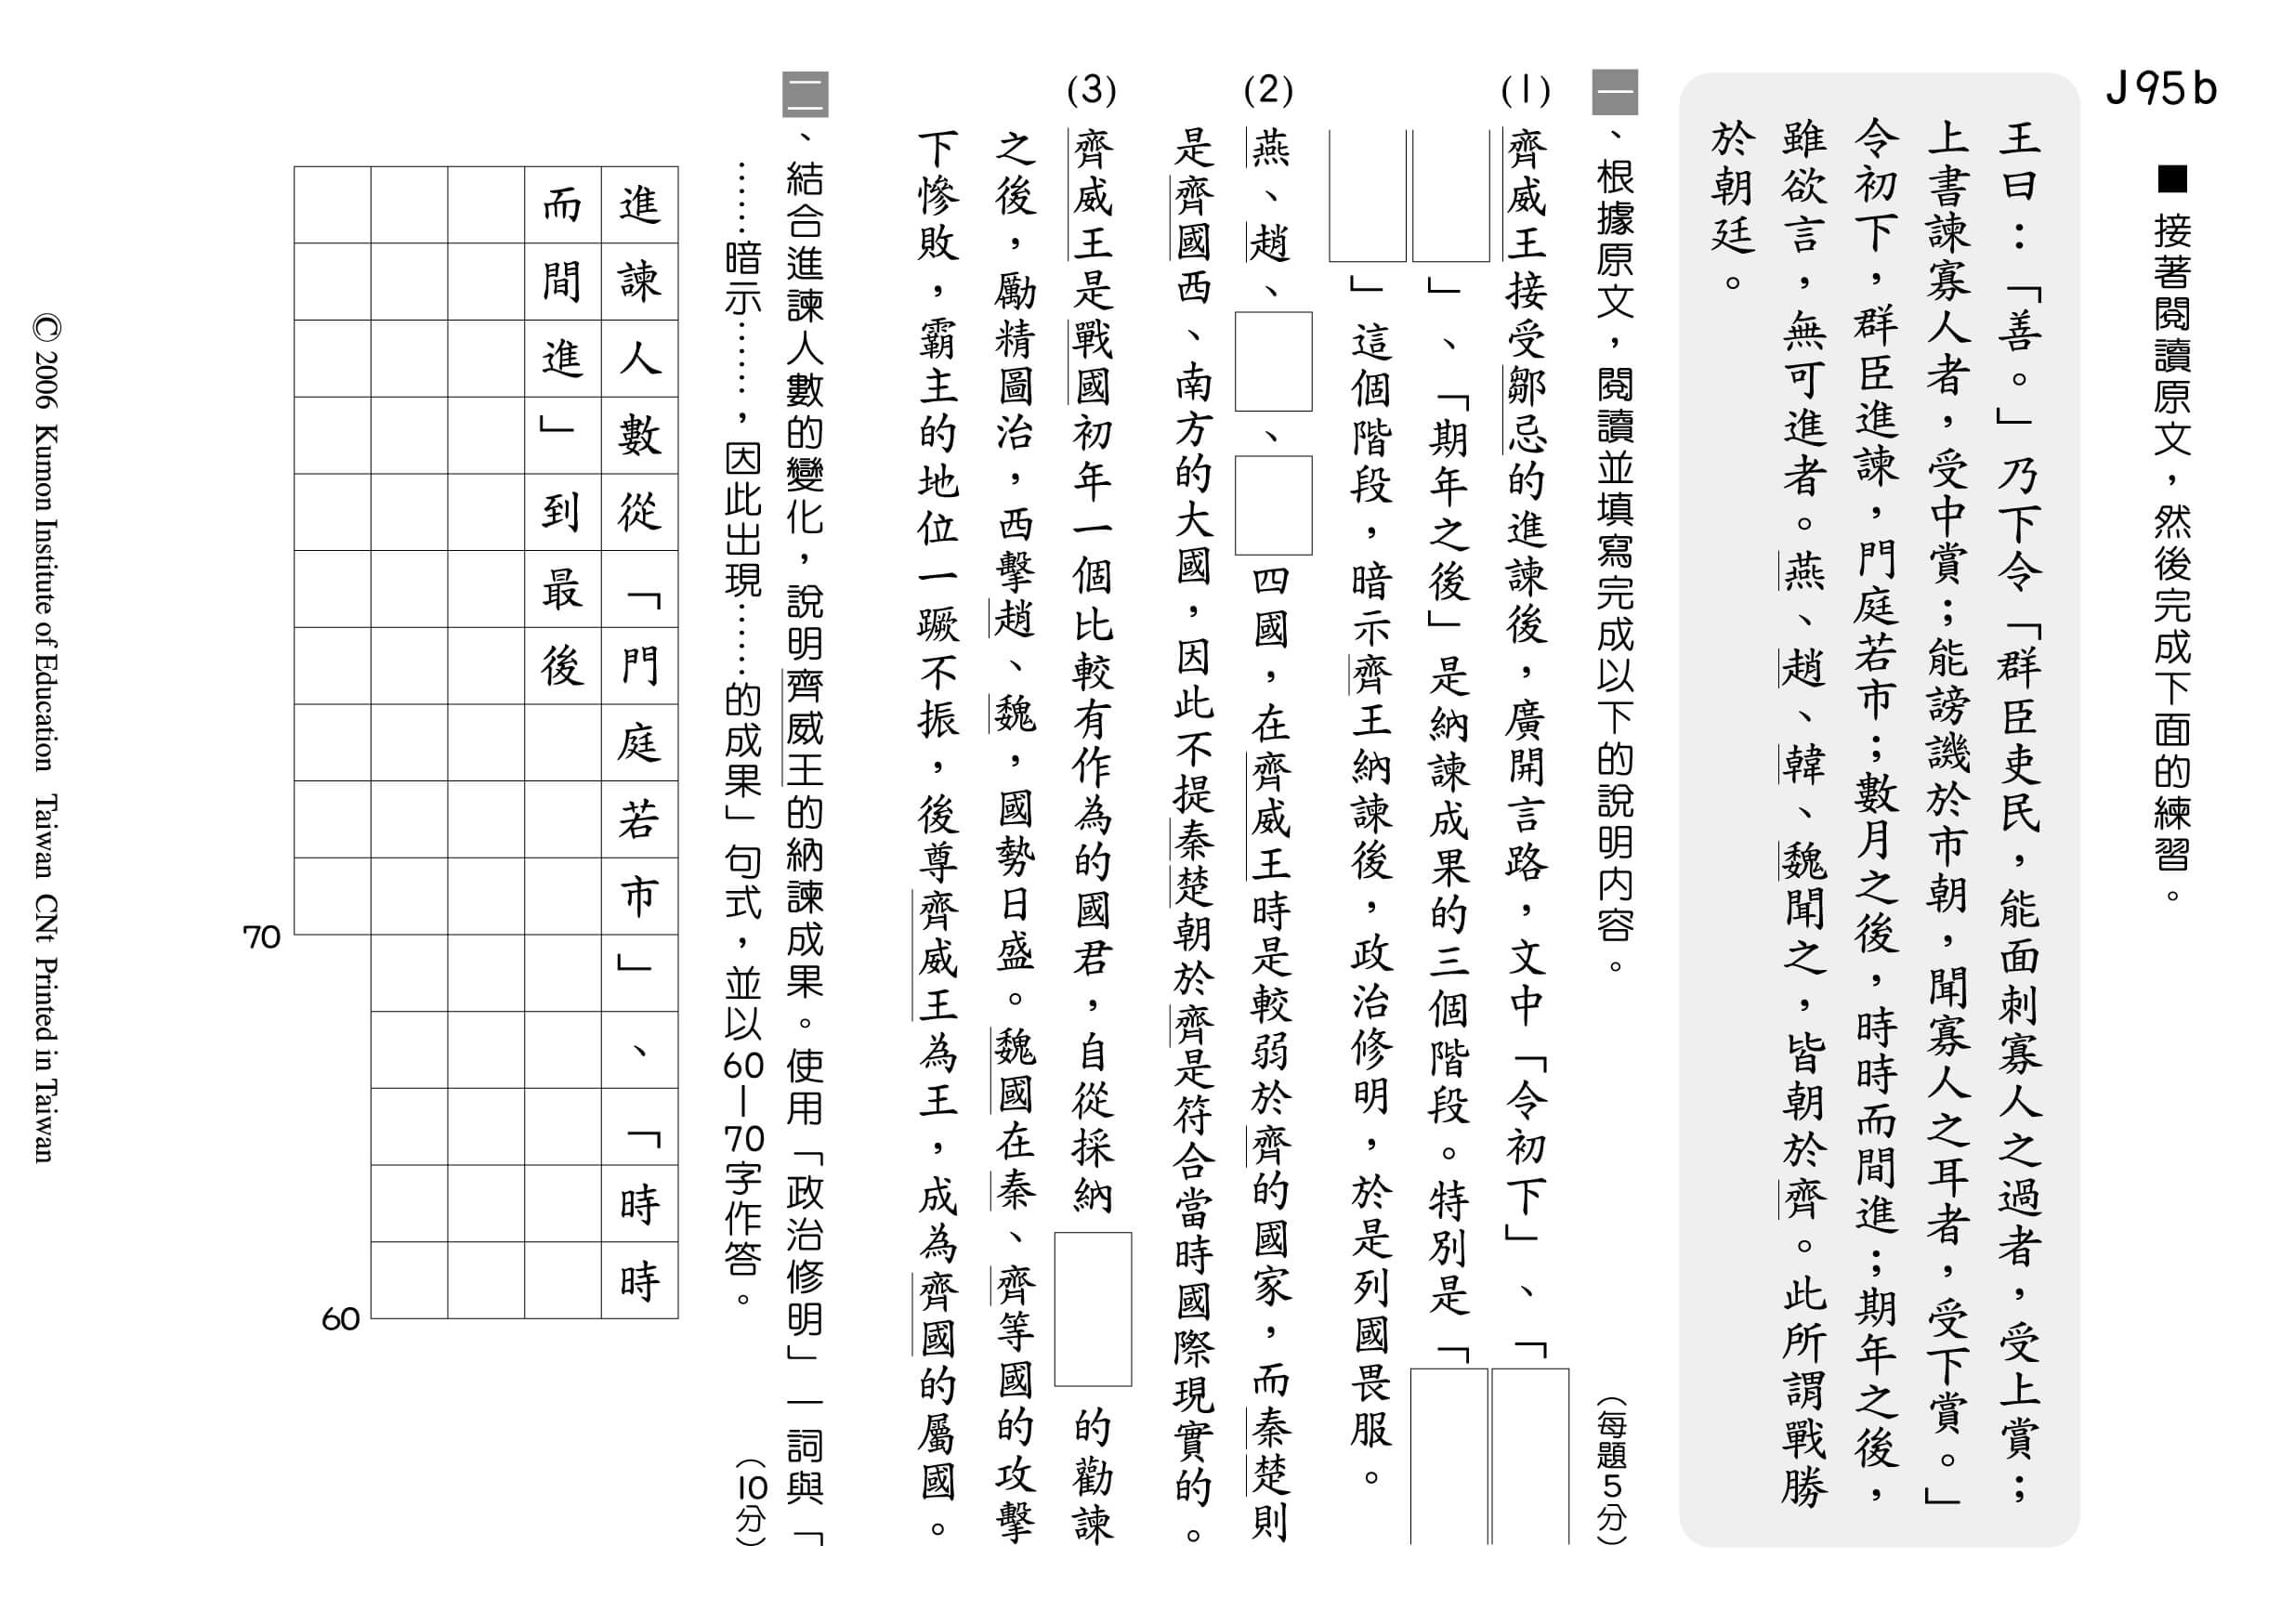 J95b
■ 接著閱讀原文，然後完成下面的練習。
王曰：「善。」乃下令「群臣吏民，能面刺寡人之過者，受上賞；
上書諫寡人者，受中賞；能謗譏於市朝，聞寡人之耳者，受下賞。」
令初下，群臣進諫，門庭若市；數月之後，時時而間進；期年之後，
雖欲言，無可進者。燕、趙、韓、魏聞之，皆朝於齊。此所謂戰勝
於朝廷。
一、根據原文，閱讀並填寫完成以下的說明內容。（每題5分）
(1) 齊威王接受鄒忌的進諫後，廣開言路，文中「令初下」、「
」、「期年之後」是納諫成果的三個階段。特別是「
」這個階段，暗示齊王納諫後，政治修明，於是列國畏服。
(2) 燕、趙、、四國，在齊威王時是較弱於齊的國家，而秦楚則
是齊國西、南方的大國，因此不提秦楚朝於齊是符合當時國際現實的。
(3) 齊威王是戰國初年一個比較有作為的國君，自從採納的勸諫
之後，勵精圖治，西擊趙、魏，國勢日盛。魏國在秦、齊等國的攻擊
下慘敗，霸主的地位一蹶不振，後尊齊威王為王，成為齊國的屬國。
二、結合進諫人數的變化，說明齊威王的納諫成果。使用「政治修明」一詞與「
……暗示……，因此出現……的成果」句式，並以60－70字作答。（10分）
進諫人數從「門庭若市」、「時時
而間進」到最後
60
70
© 2006 Kumon Institute of Education Taiwan CNt Printed in Taiwan